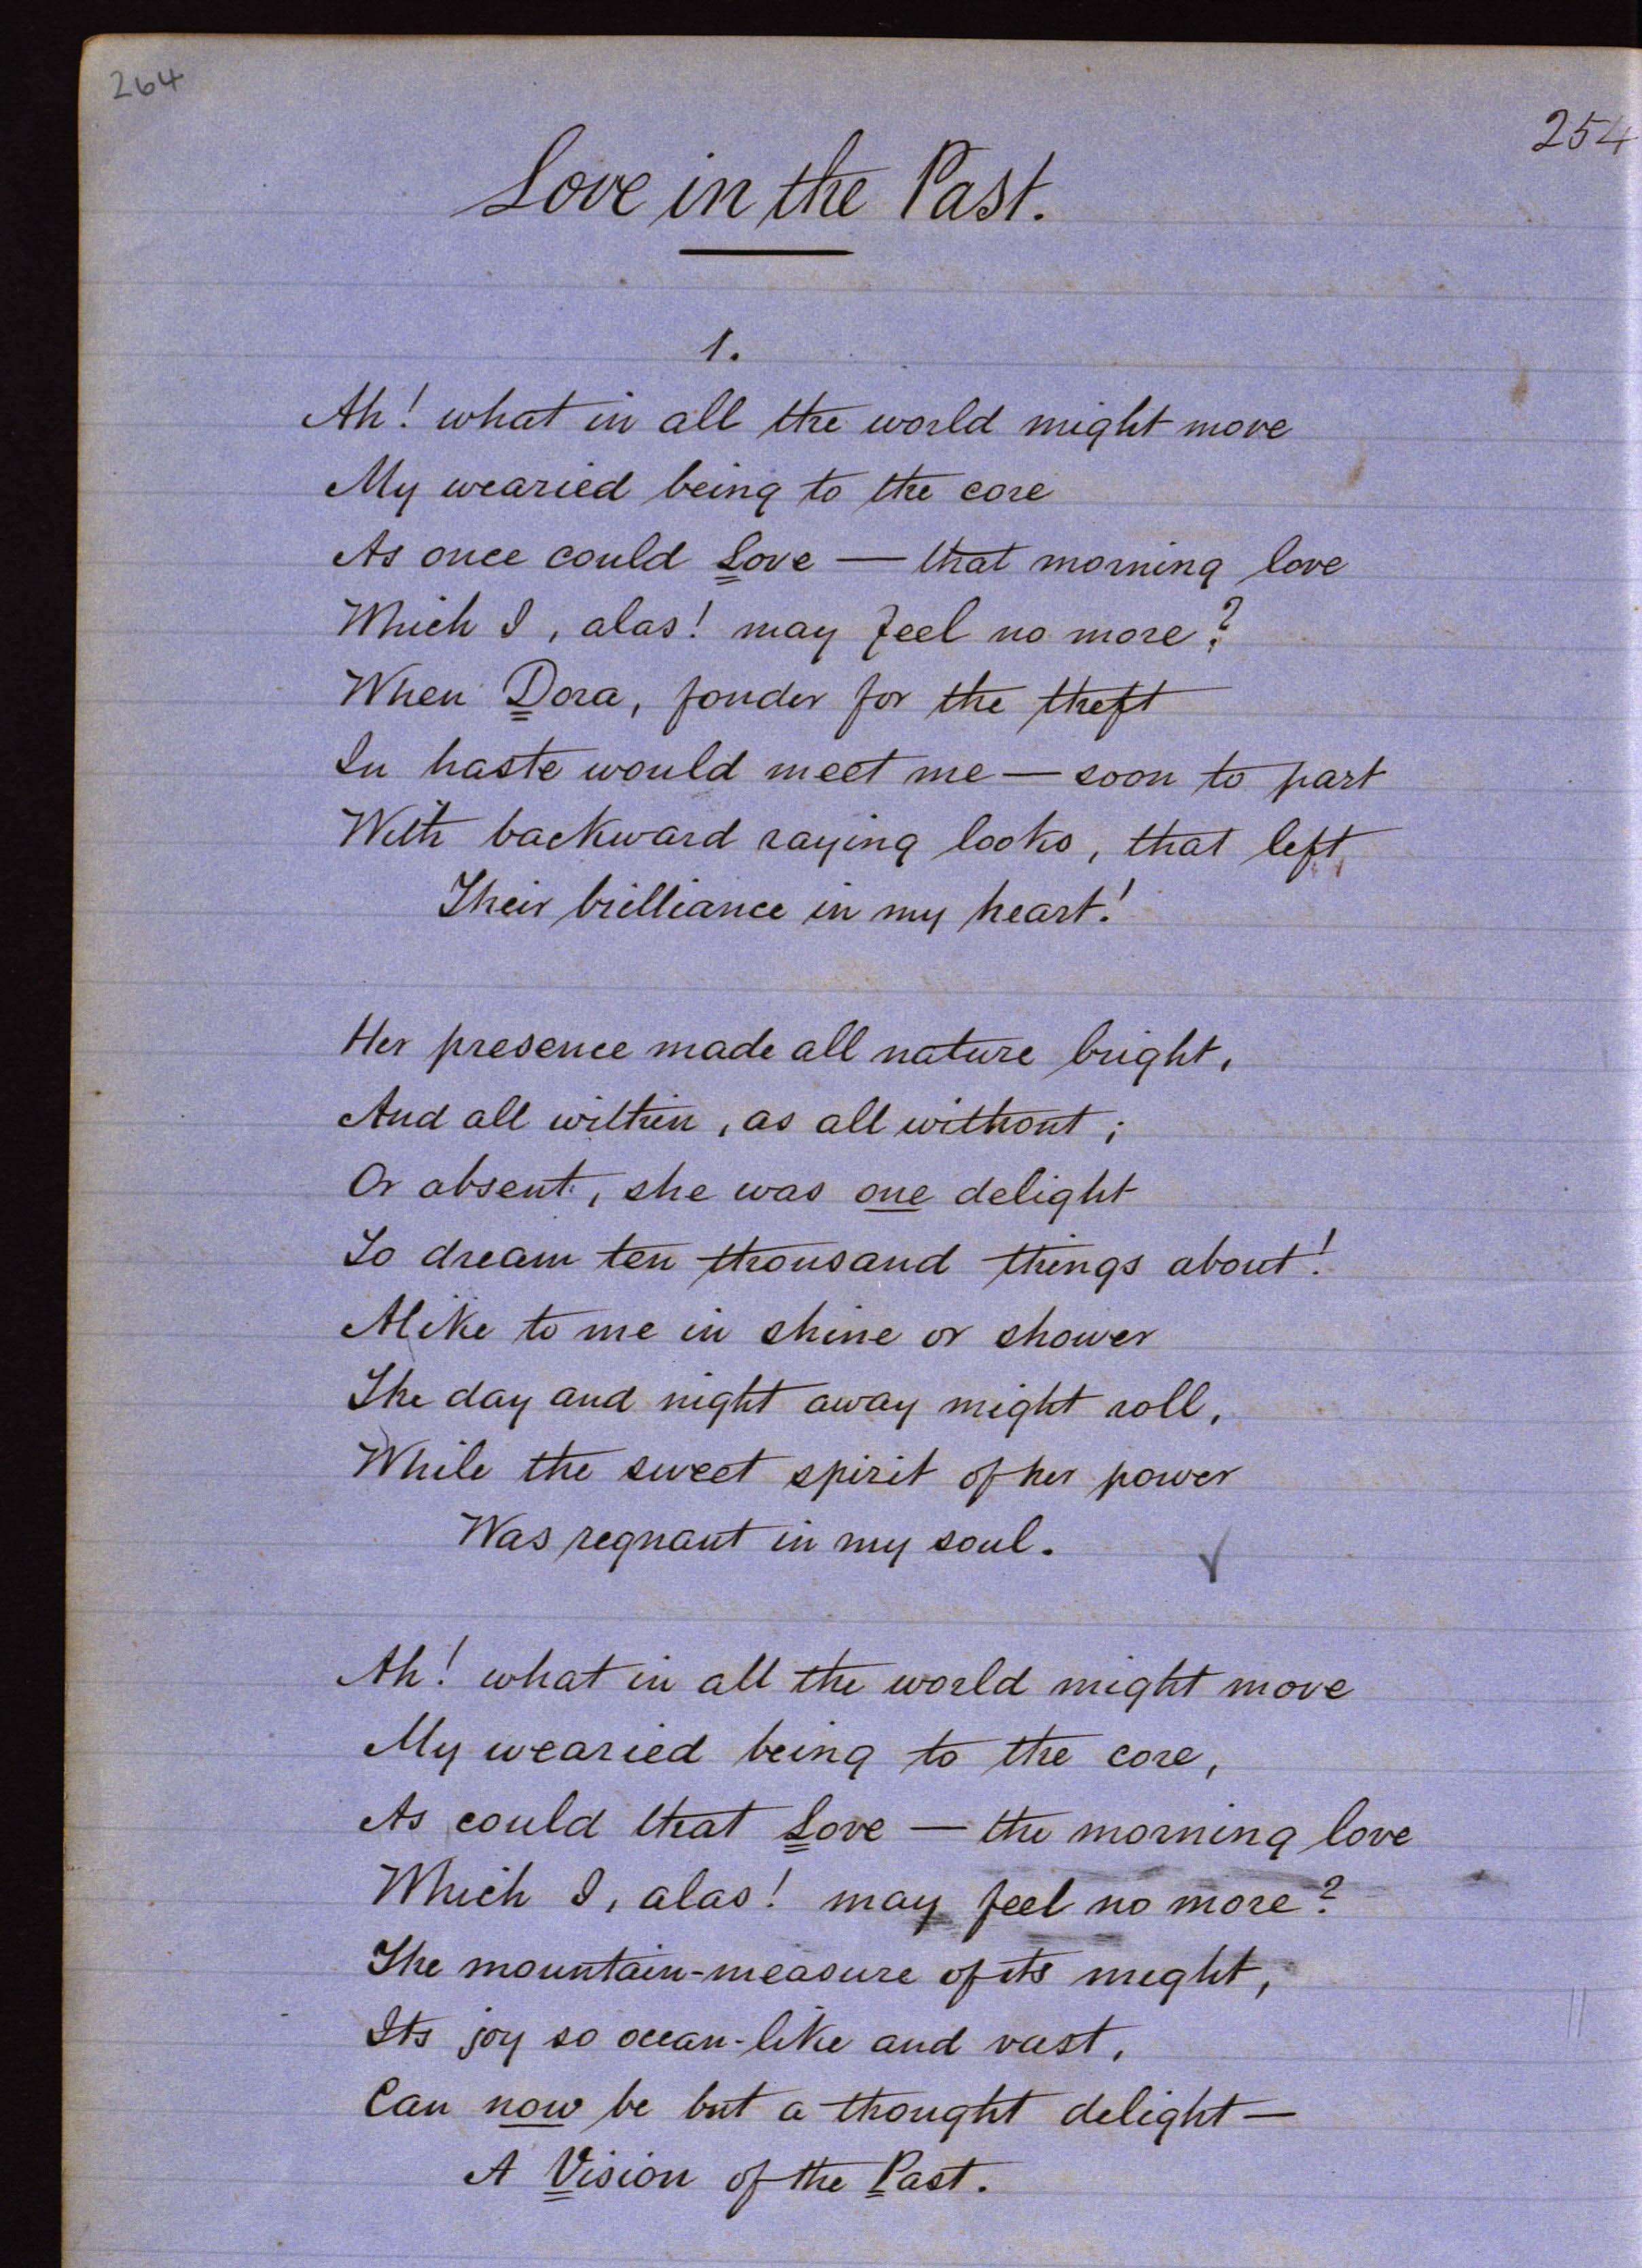 264
254
Love in the Past.
1.
Ah! what in all the world might move
My wearied being to the core
As once could Love — that morning love
Which I, alas! may feel no more?
When Dora, fonder for the theft
In haste would meet me — soon to part
With backward raying looks, that left,
Their brilliance in my heart!
Her presence made all nature bright,
And all within, as all without;
Or absent, she was one delight
To dream ten thousand things about!
Alike to me in shine or shower
The day and night away might roll,
While the sweet spirit of her power
Was regnant in my soul.
Ah! what in all the world might move
My wearied being to the core,
As could that Love — the morning love
Which I, alas! may feel no more?
The mountain-measure of its might,
Its joy so ocean-like and vast,
Can now be but a thought delight —
A Vision of the Past.